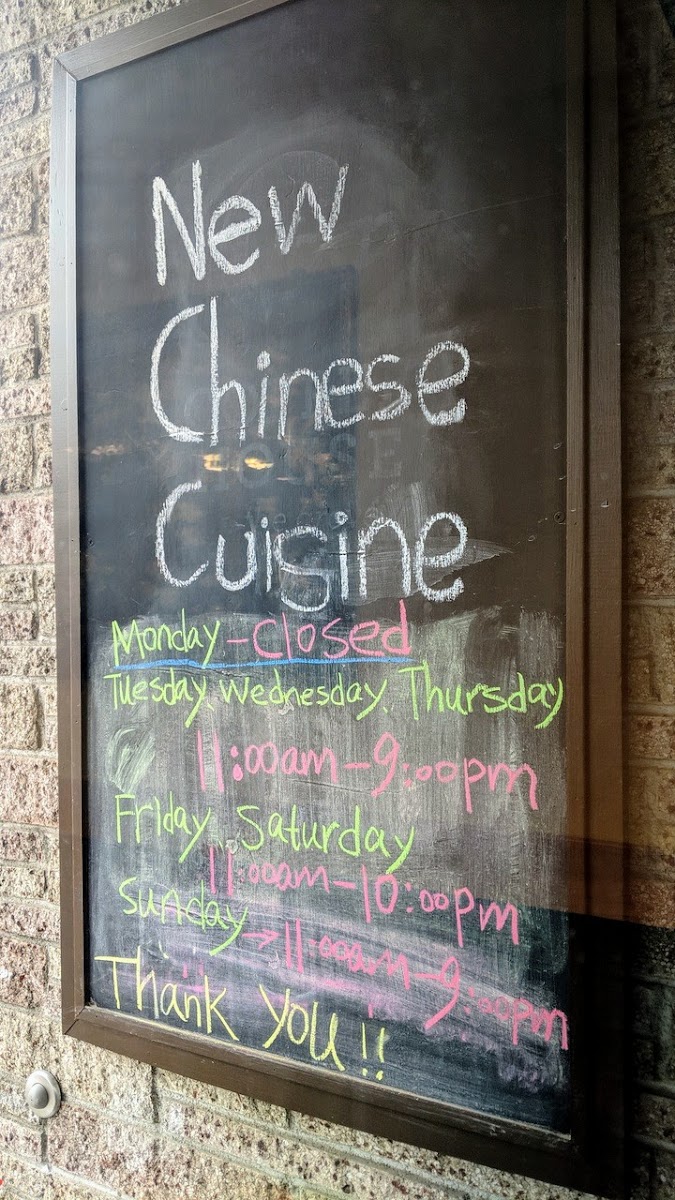 New
Chinese
Cuisine
Monday - closed
Tuesday, Wednesday, Thursday
11:00am - 9:00pm
Friday, Saturday
11:00am - 10:00pm
Sunday → 11:00am - 9:00pm
Thank you!!